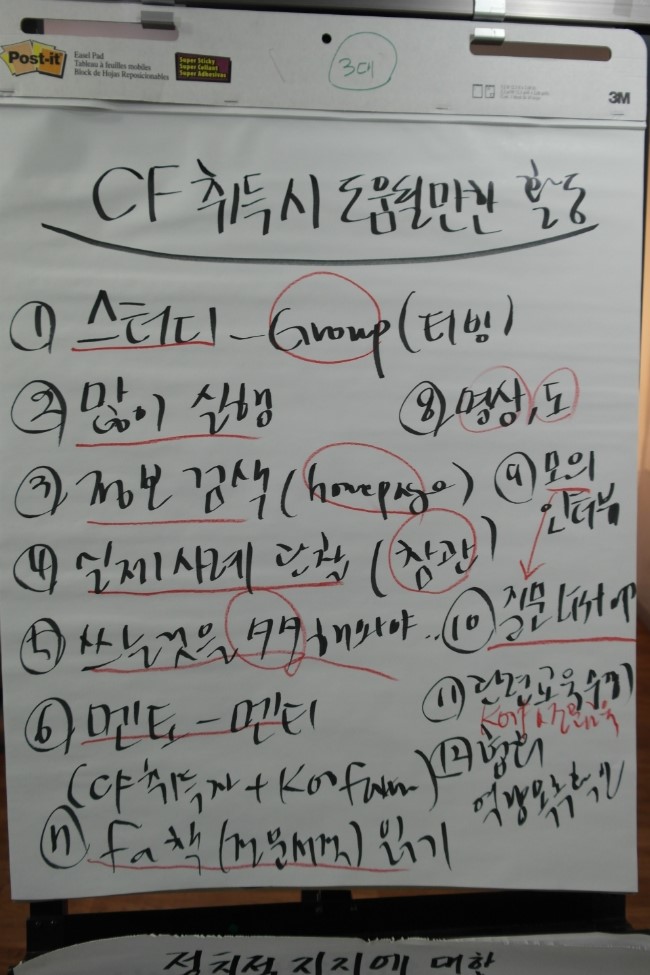 Post-it
Easel Pad
Tableau à feuilles mobiles
Block de Hojas Reposicionables
Super Sticky
Super Collant
Super Adhesivos
3대
3M
CF 취득시 도움될만한 활동
① 스터디 - Group (터빙)
② 많이 실행
③ 정보 검색 (homepage)
④ 실제사례 관찰 (참관)
⑤ 쓰는것을 해봐야..
⑥ 멘토 - 멘티
(CF 취득자 + Kofa
⑦ fa책 (전문서적) 읽기
⑧ 명상, 도
⑨ 모의
인터뷰
⑩ 질문
⑪ 관련교육수강
Kofa 전문교육
⑫ 협회
역량
정치적 지지에 대한